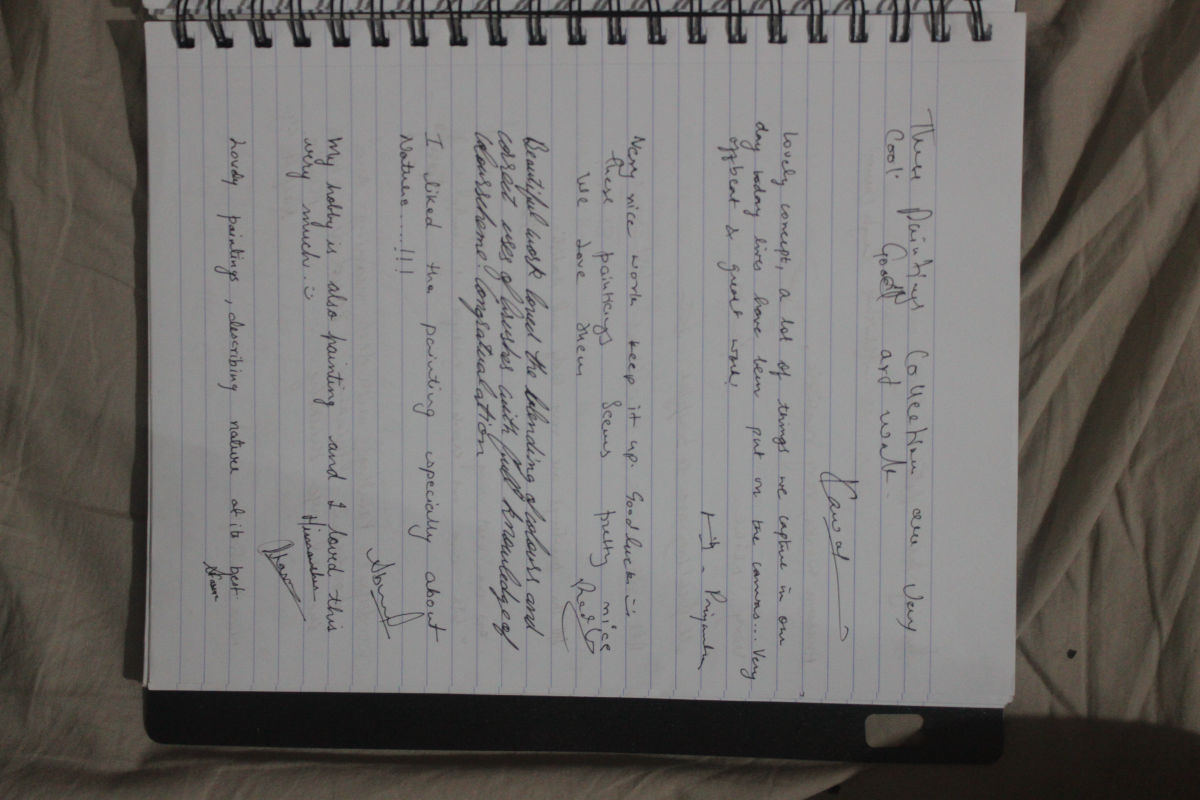 These Paintings Collection are Very
Cool! Good and work.
Kawal
Lovely concept, a lot of things we capture in our
day today lives have been put on the canvas... Very
offbeat & great work!
- Priyanka
Very nice work keep it up. Good luck :)
these paintings seems pretty nice
we love them
Beautiful work loved the blending of colours and
correct uses of brushes with full knowledge of
colourscheme. congratualation
I liked the painting specially about
Nature.....!!!
My hobby is also painting and I loved this
very much. :)
Himanshu
Lovely paintings, describing nature at its best.